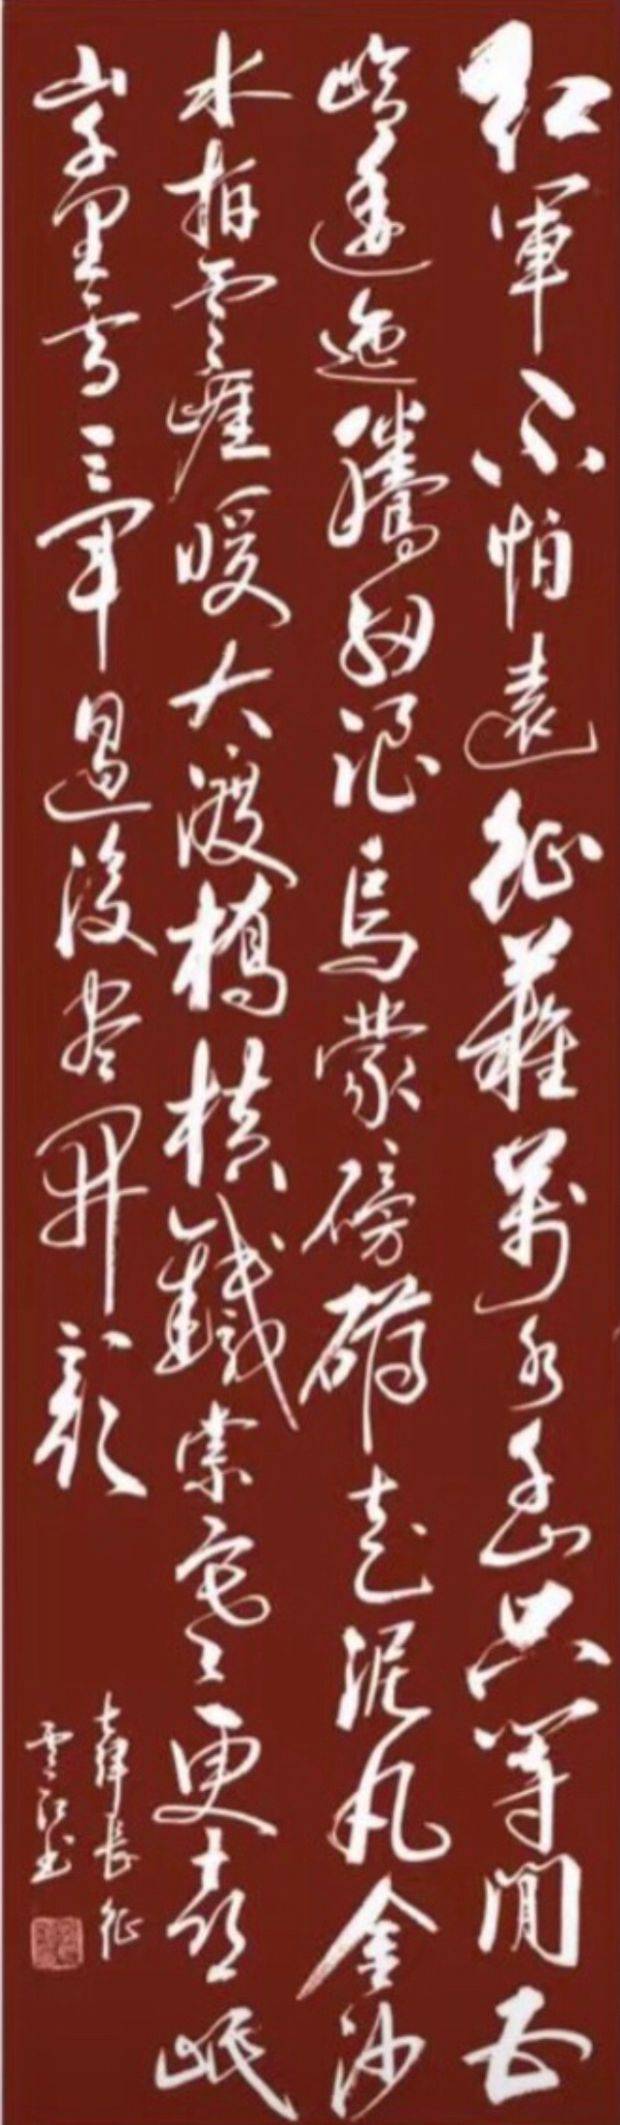 紅軍不怕遠征難萬水千山只等閒五
嶺逶迤騰細浪烏蒙磅礴走泥丸金沙
水拍雲崖暖大渡橋橫鐵索寒更喜岷
山千里雪三軍過後盡開顏
七律長征
雲江書